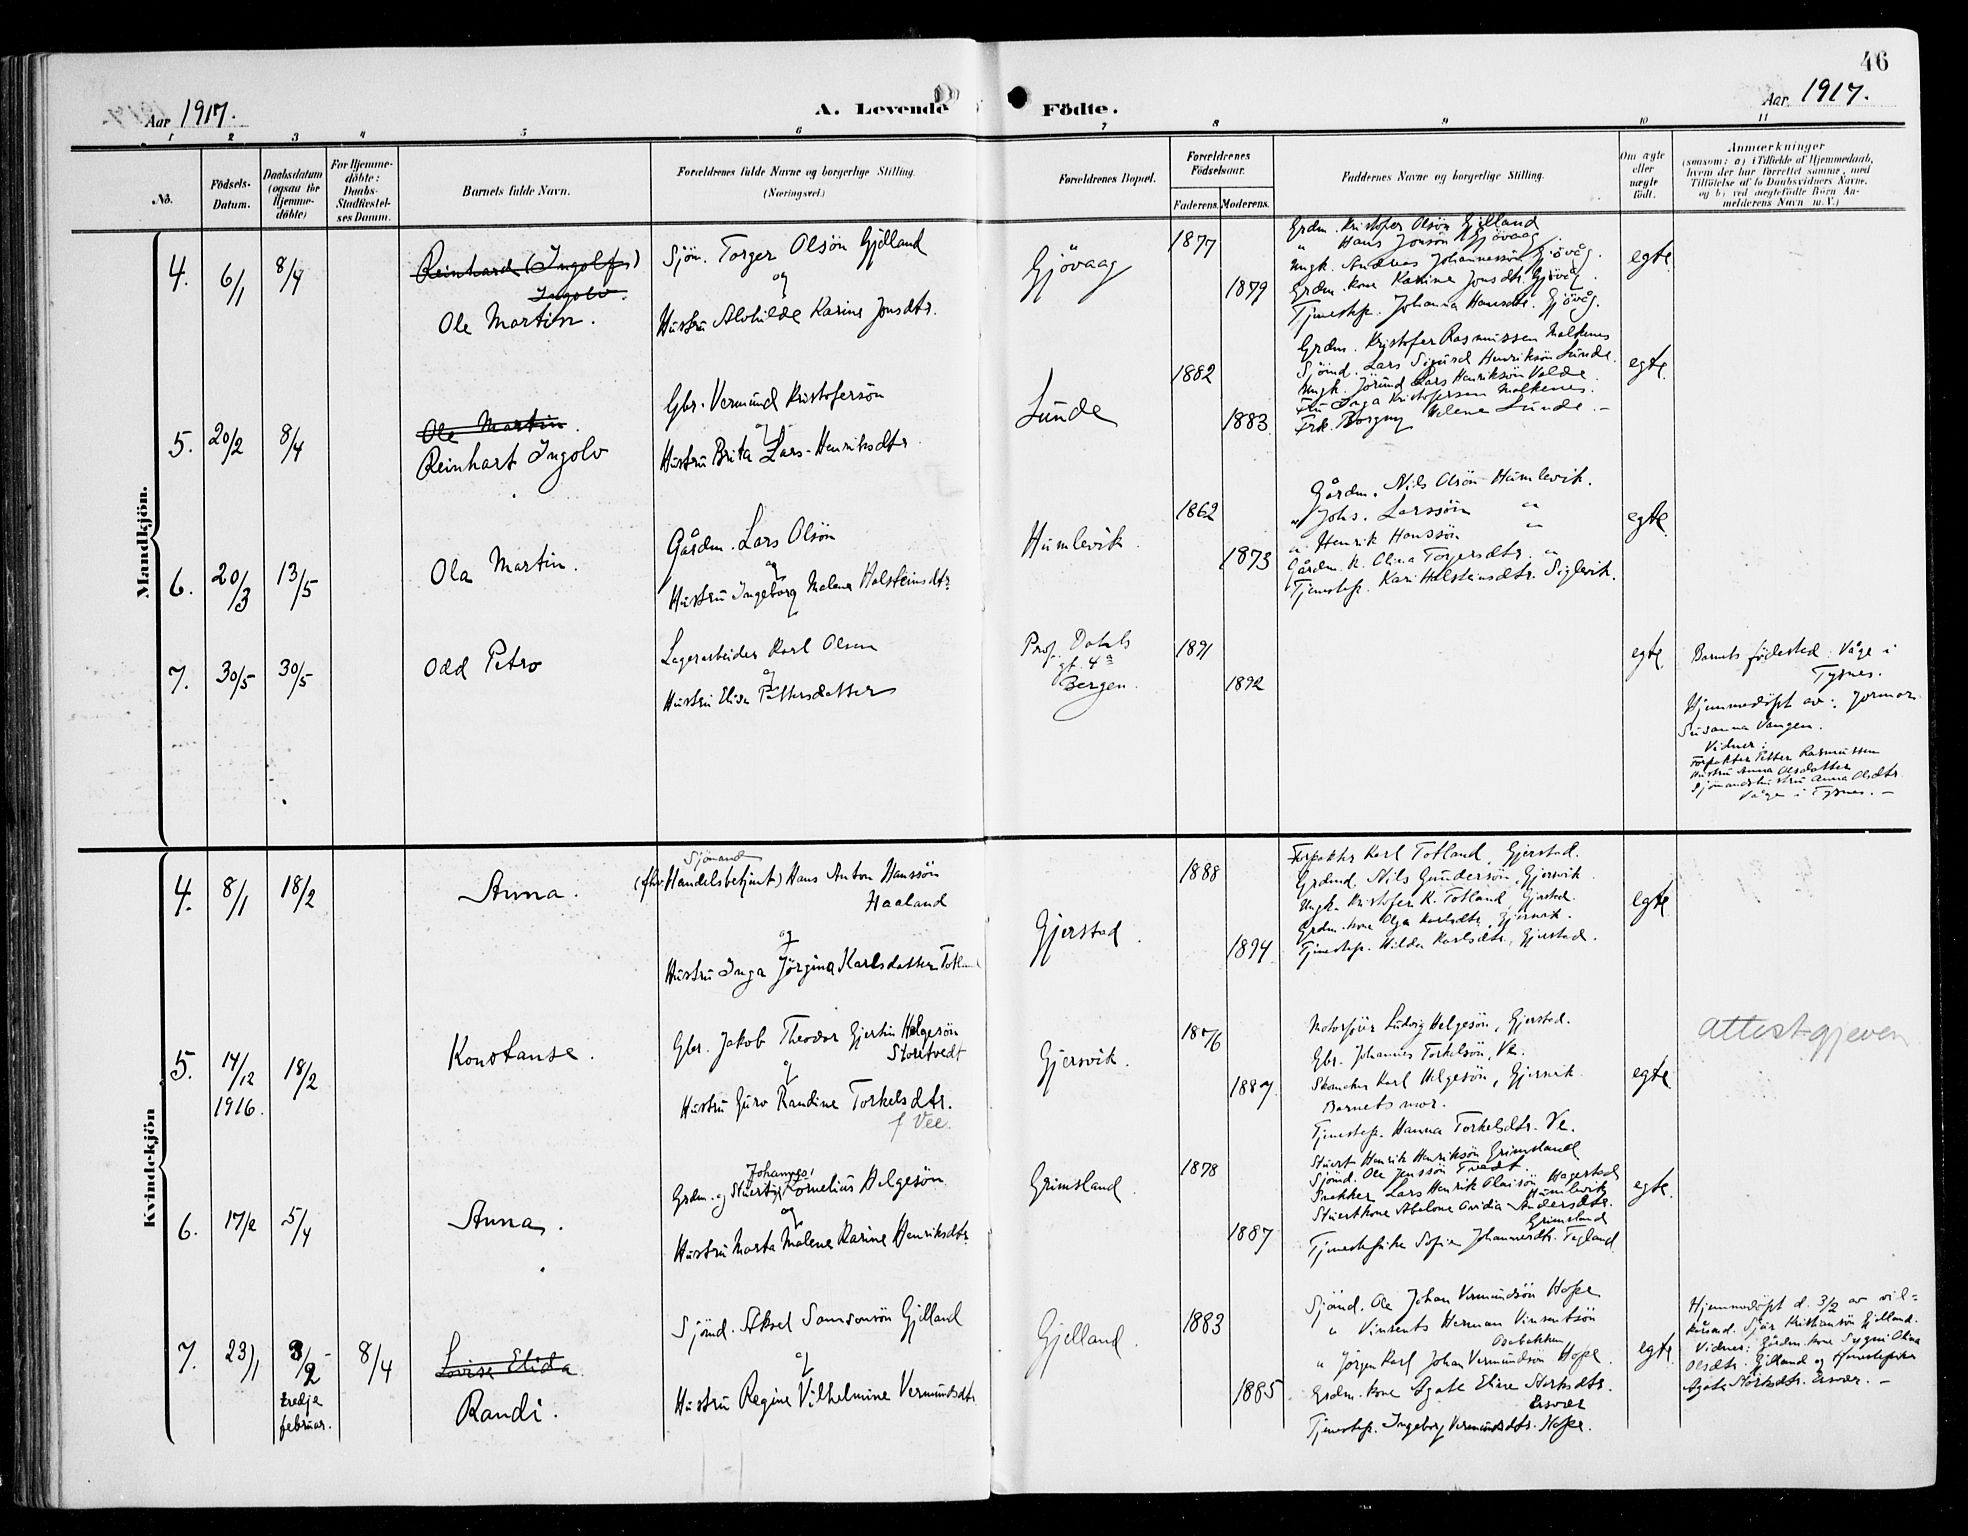 46
Aar 1917.
A. Levende Födte.
Aar 1917.
1 2 3 4 5 6 7 8 9 10 11
No.
Födsels-
Datum.
Daabsdatum
(ogsaa for
Hjemme-
döbte)
For Hjemme-
döbte:
Daabs-
Stadfæstel-
ses Datum.
Barnets fulde Navn.
Forældrenes fulde Navne og borgerlige Stilling.
(Næringsvei.)
Forældrenes Bopæl.
Forældrenes
Födselsaar.
Faderens. Moderens.
Faddernes Navne og borgerlig Stilling.
Om ægte
eller
uægte
födt.
Anmærkninger
(saasom: a) i Tilfælde af Hjemmedaab,
hvem der har forrettet samme, med
Tilföielse af to Daabsvidners Navne,
og b) ved uægtefödte Börn An-
melderens Navn m. V.)
Mandkjön.
4. 6/1 8/4
Reinhard (Ingolf)
Ingolv.
Ole Martin.
Sjöm. Torger Olsön Gjelland
og
Hustru Alvhilde Karine Jonsdtr.
Gjövaag
1877
1879
Grdm. Kristofer Olsön Gjelland
" Hans Jonsön Gjövaag.
Ungk. Andreas Johannessön Gjövåg.
Grdm. kone Karine Jonsdtr. Gjövåg.
Tjenestep. Johanna Hansdtr. Gjövåg.
egte
5. 20/2 8/4
Ole Martin.
Reinhart Ingolv
Gbr. Vermund Kristofersön
og
Hustru Brita Lars-Henriksdtr.
Lunde
1882
1883
Grdm. Kristofer Rasmussen Malkenes
Sjömd. Lars Sigurd Henriksön Lunde.
Ungk. Jörund Lars Henriksön Valde.
Fru Inga Kristofersen Malkenes.
Frk. Borgny Helene Lunde.
egte
6. 20/3 13/5
Ola Martin.
Gårdm. Lars Olsön
og
Hustru Ingeborg Malene Holsteinsdtr.
Humlevik.
1862
1873
Gårdm. Nils Olsön Humlevik.
" Johs. Larssön "
" Henrik Hanssön "
Gårdm. k. Olina Torgersdtr. "
Tjenestep. Kari Holsteinsdtr. Siglevik.
egte
7. 30/5 30/5
Odd Petro
Lagerarbeider Karl Olsen
og
Hustru Elise Pettersdatter
Prof. Dahls
gt. 4a
Bergen.
1891
1892
egte
Barnets födested: Våge i
Tysnes.
Hjemmedöpt av: Jormor
Susanna Vangen.
Vidner:
Forpakter Petter Rasmussen
Hustru Anna Olsdatter
Sjömandshustru Anna Olsdtr.
Våge i Tysnes. –
Kvindekjön
4. 8/1 18/2
Anna.
Sjömand
(fhv. Handelsbetjent) Hans Anton Hanssön
Haaland
og
Hustru Inga Jörgina Karlsdatter Totland
Gjerstad.
1888
1894
Forpakter Karl Totland, Gjerstad.
Grdmd. Nils Gundersön, Gjersvik
Ungk. Kristofer K. Totland, Gjerstad.
Grdm. kone Olga Karlsdtr. Gjersvik.
Tjenestep. Hilda Karlsdtr., Gjerstad.
egte
5. 14/12 18/2
1916.
Konstanse.
Gbr. Jakob Theodor Gjertin Helgesön
Storetvedt
og
Hustru Guro Randine Torkelsdtr.
f Vee.
Gjersvik.
1876
1887
Motorförer Ludvig Helgesön, Gjerstad.
Gbr. Johannes Torkelsön, Ve.
Skomaker Karl Helgesön, Gjersvik.
Barnets mor.
Tjenestep. Hanna Torkelsdtr. Ve.
egte
attest gjeven
6. 17/2 5/4
Anna.
Johannes
Grdm. og Stuert Kornelius Helgesön
og
Hustru Marta Malene Karine Henriksdtr.
Grimsland.
1878
1887
Stuert Henrik Henriksön Grimsland
Sjömd. Ole Jenssön Tvedt
Snekker Lars Henrik Olaisön Hagerstad
Humlevik
Stuertkone Abelone Ovidia Andersdtr.
Grimsland
Tjenestepike Sofie Johannesdtr. Tegland
egte
7. 23/1 3/2 8/4
tredje
februar.
Lovise Elida
Randi.
Sjömd. Aksel Samsonsön Gjelland
og
Hustru Regine Vilhelmine Vermundsdtr.
Gjelland.
1883
1885
Sjömd. Ole Johan Vermundsön Hope
" Vinsents Herman Vinsentsön
" Jörgen Karl Johan Vermundsön Hope.
Grdm. kone Agate Eline Storksdtr.
Ersvær
Tjenestep. Ingeborg Vermundsdtr. Hope.
egte
Hjemmedöpt d. 3/2 av vil-
kårsmd. Sjur Kristiansön Gjelland.
Vidner: Gårdm. kone Sygni Olina
Olsdtr. Gjelland og tjenestepike
Agate Storksdtr. Ersvær. –